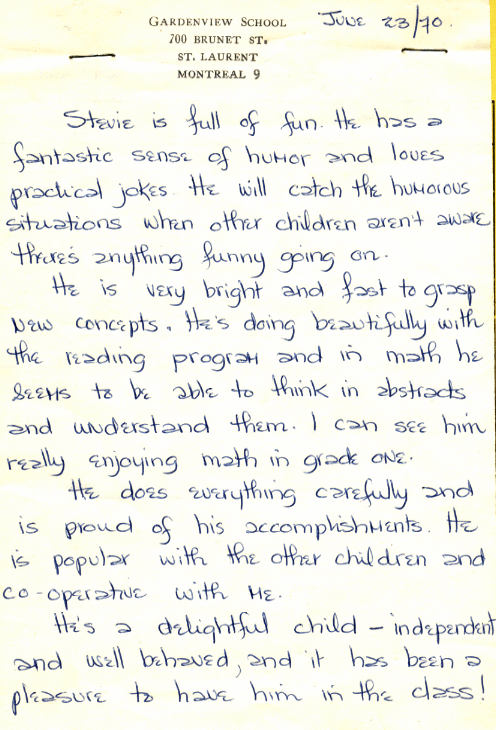 GARDENVIEW SCHOOL
JUNE 23/70.
700 BRUNET ST.
ST. LAURENT
MONTREAL 9
Stevie is full of fun. He has a
fantastic sense of humor and loves
practical jokes. He will catch the humorous
situations when other children aren't aware
there's anything funny going on.
He is very bright and fast to grasp
new concepts. He's doing beautifully with
the reading program and in math he
seems to be able to think in abstracts
and understand them. I can see him
really enjoying math in grade one.
He does everything carefully and
is proud of his accomplishments. He
is popular with the other children and
co-operative with me.
He's a delightful child – independent
and well behaved, and it has been a
pleasure to have him in the class!